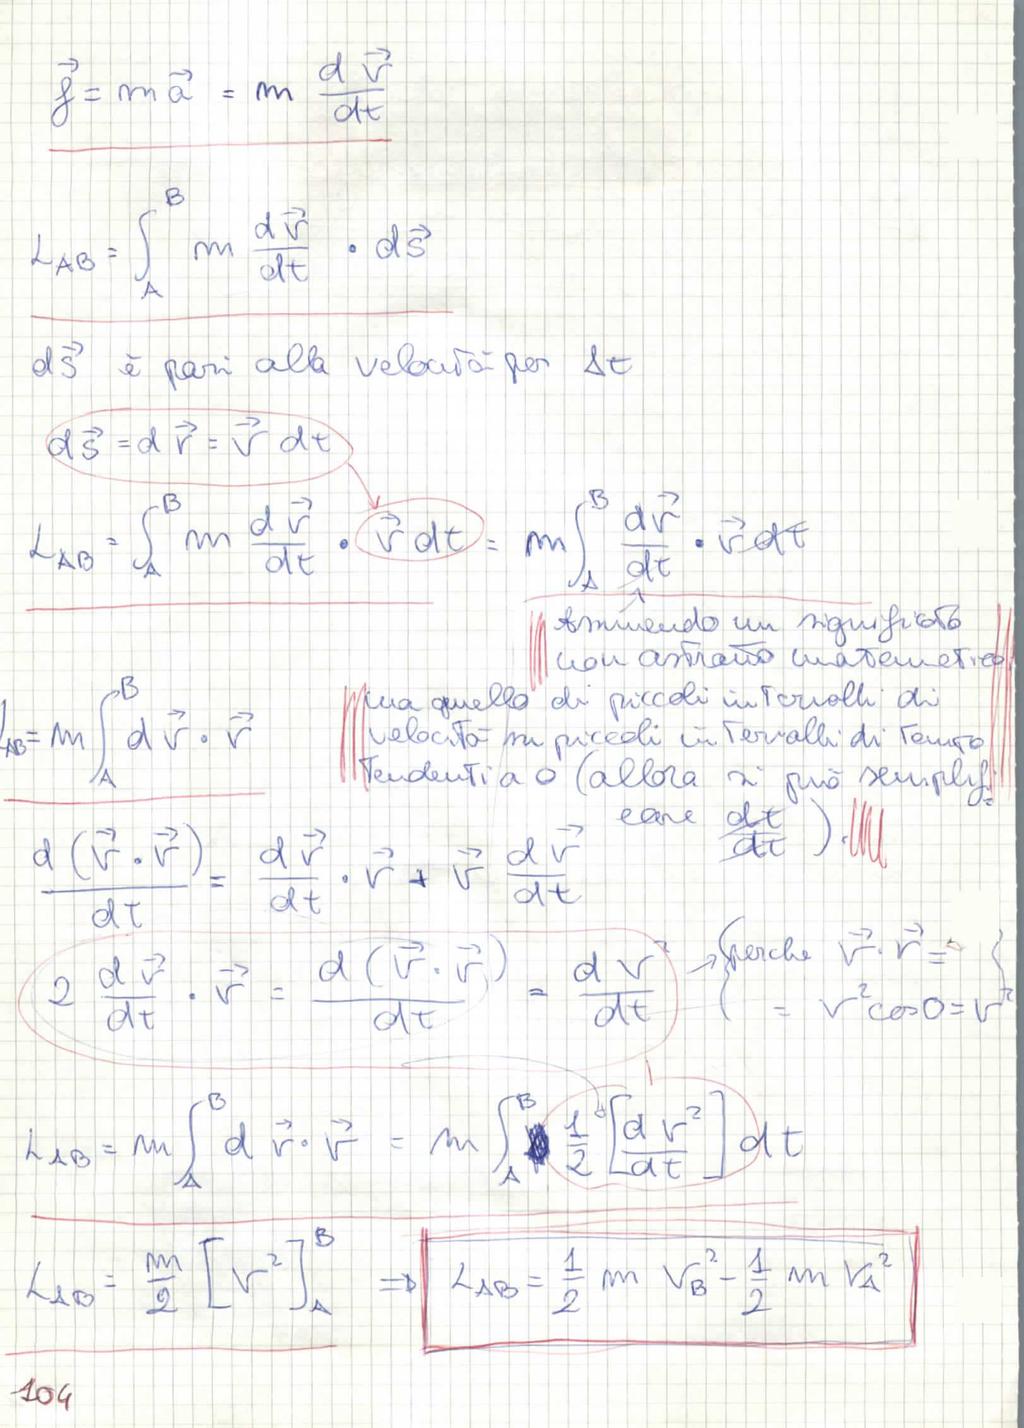 f⃗ = m a⃗ = m dv⃗/dt
L_AB = ∫_A^B m dv⃗/dt · ds⃗
ds⃗ è pari alla velocità per Δt
ds⃗ = d r⃗ = v⃗ dt
L_AB = ∫_A^B m dv⃗/dt · v⃗ dt = m ∫_A^B dv⃗/dt · v⃗ dt
Assumendo un significato
non astratto matematico
ma quello di piccoli intervalli di
velocità su piccoli intervalli di tempo
tendenti a 0 (allora si può semplifi-
care dt/dt).
L_AB = m ∫_A^B d v⃗ · v⃗
d(v⃗ · v⃗)/dt = dv⃗/dt · v⃗ + v⃗ dv⃗/dt
2 dv⃗/dt · v⃗ = d(v⃗ · v⃗)/dt = dv²/dt → {perche v⃗ · v⃗ =
= v² cos0 = v²}
L_AB = m ∫_A^B d v⃗ · v⃗ = m ∫_A^B 1/2 [dv²/dt] dt
L_AB = m/2 [v²]_A^B ⇒ L_AB = 1/2 m V_B² - 1/2 m V_A²
104